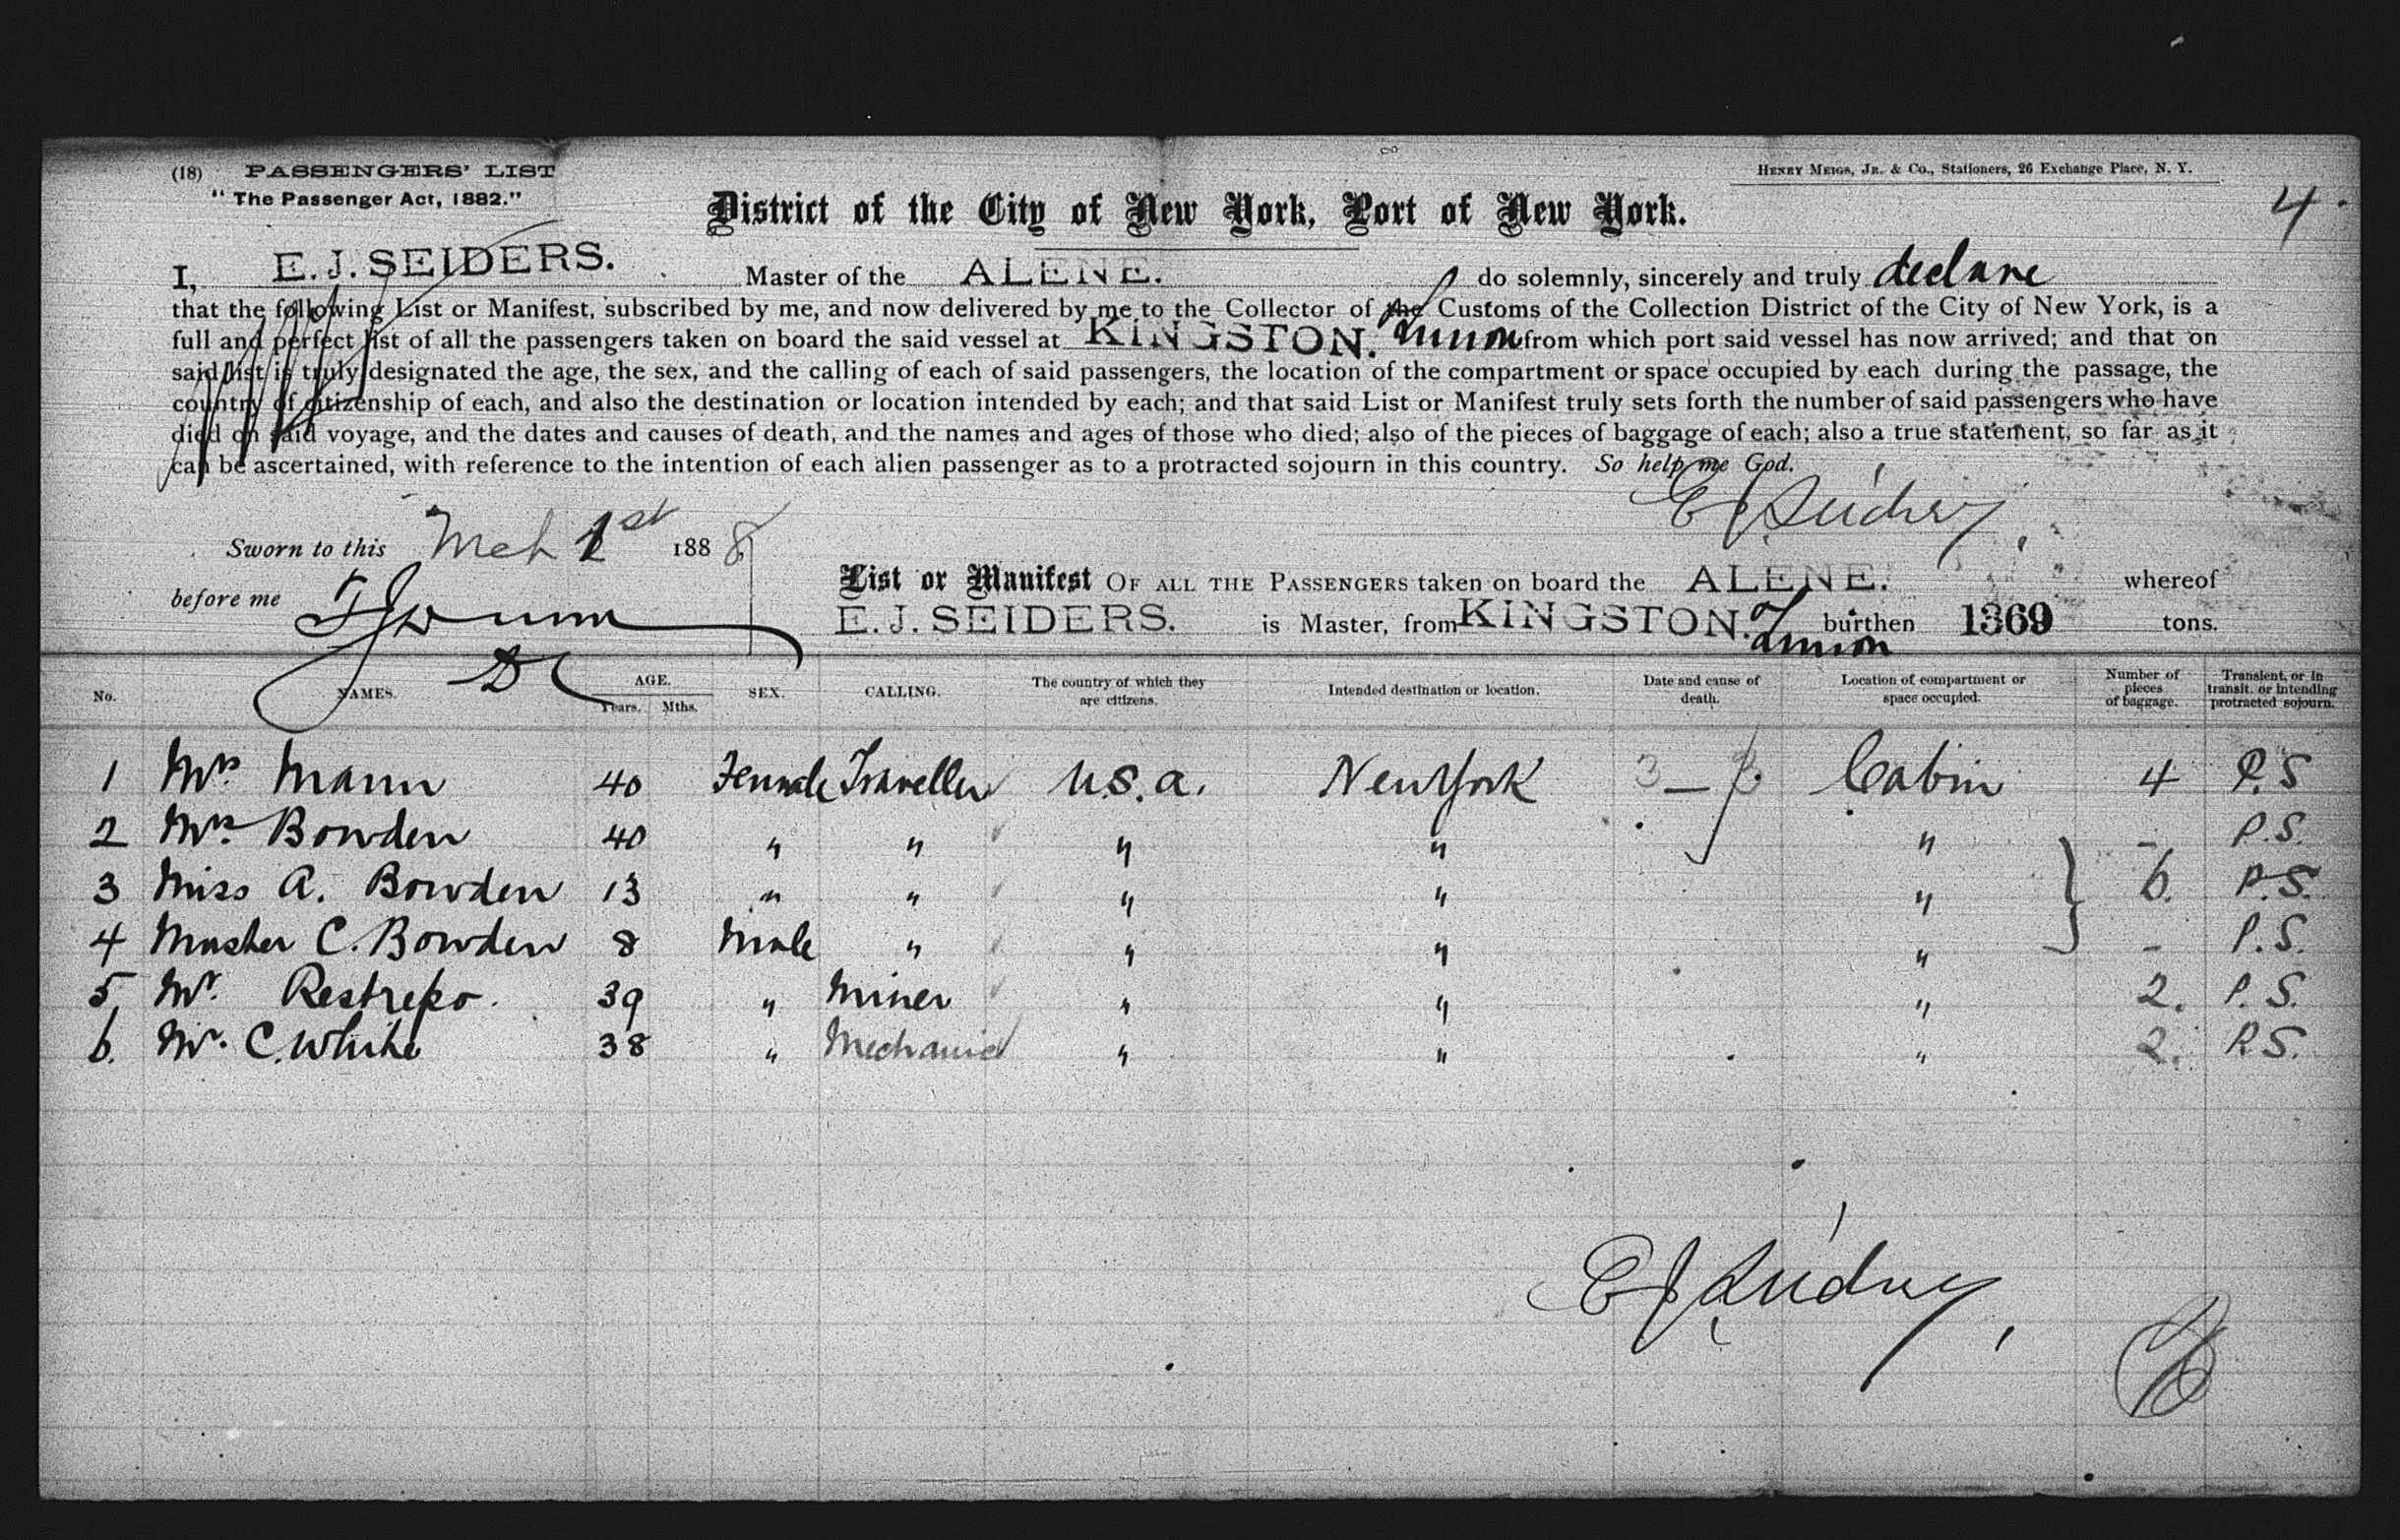 (18) PASSENGERS' LIST
"The Passenger Act, 1882."
HENRY MEIGS, JR. & CO., Stationers, 26 Exchange Place, N. Y.
4.
District of the City of New York, Port of New York.
I, E. J. SEIDERS. Master of the ALENE. do solemnly, sincerely and truly declare
that the following List or Manifest, subscribed by me, and now delivered by me to the Collector of the Customs of the Collection District of the City of New York, is a
full and perfect list of all the passengers taken on board the said vessel at KINGSTON. from which port said vessel has now arrived; and that on
said list is truly designated the age, the sex, and the calling of each of said passengers, the location of the compartment or space occupied by each during the passage, the
country of citizenship of each, and also the destination or location intended by each; and that said List or Manifest truly sets forth the number of said passengers who have
died on said voyage, and the dates and causes of death, and the names and ages of those who died; also of the pieces of baggage of each; also a true statement, so far as it
can be ascertained, with reference to the intention of each alien passenger as to a protracted sojourn in this country. So help me God.
Sworn to this Mch 1st 1888
before me
List or Manifest OF ALL THE PASSENGERS taken on board the ALENE. whereof
E. J. SEIDERS. is Master, from KINGSTON. burthen 1369 tons.
No. NAMES. AGE. Years. Mths. SEX. CALLING. The country of which they are citizens. Intended destination or location. Date and cause of death. Location of compartment or space occupied. Number of pieces of baggage. Transient, or in transit, or intending protracted sojourn.
1 Mrs Mann 40 Female Traveller U.S.A. New York Cabin 4 P.S
2 Mrs. Bowden 40 " " " " " - P.S.
3 Miss A. Bowden 13 " " " " " 6. P.S.
4 Master C. Bowden 8 Male " " " " - P.S.
5 Mr. Restrepo. 39 " Miner " " " 2. P.S.
6. Mr. C. White 38 " Mechanic " " " 2. P.S.